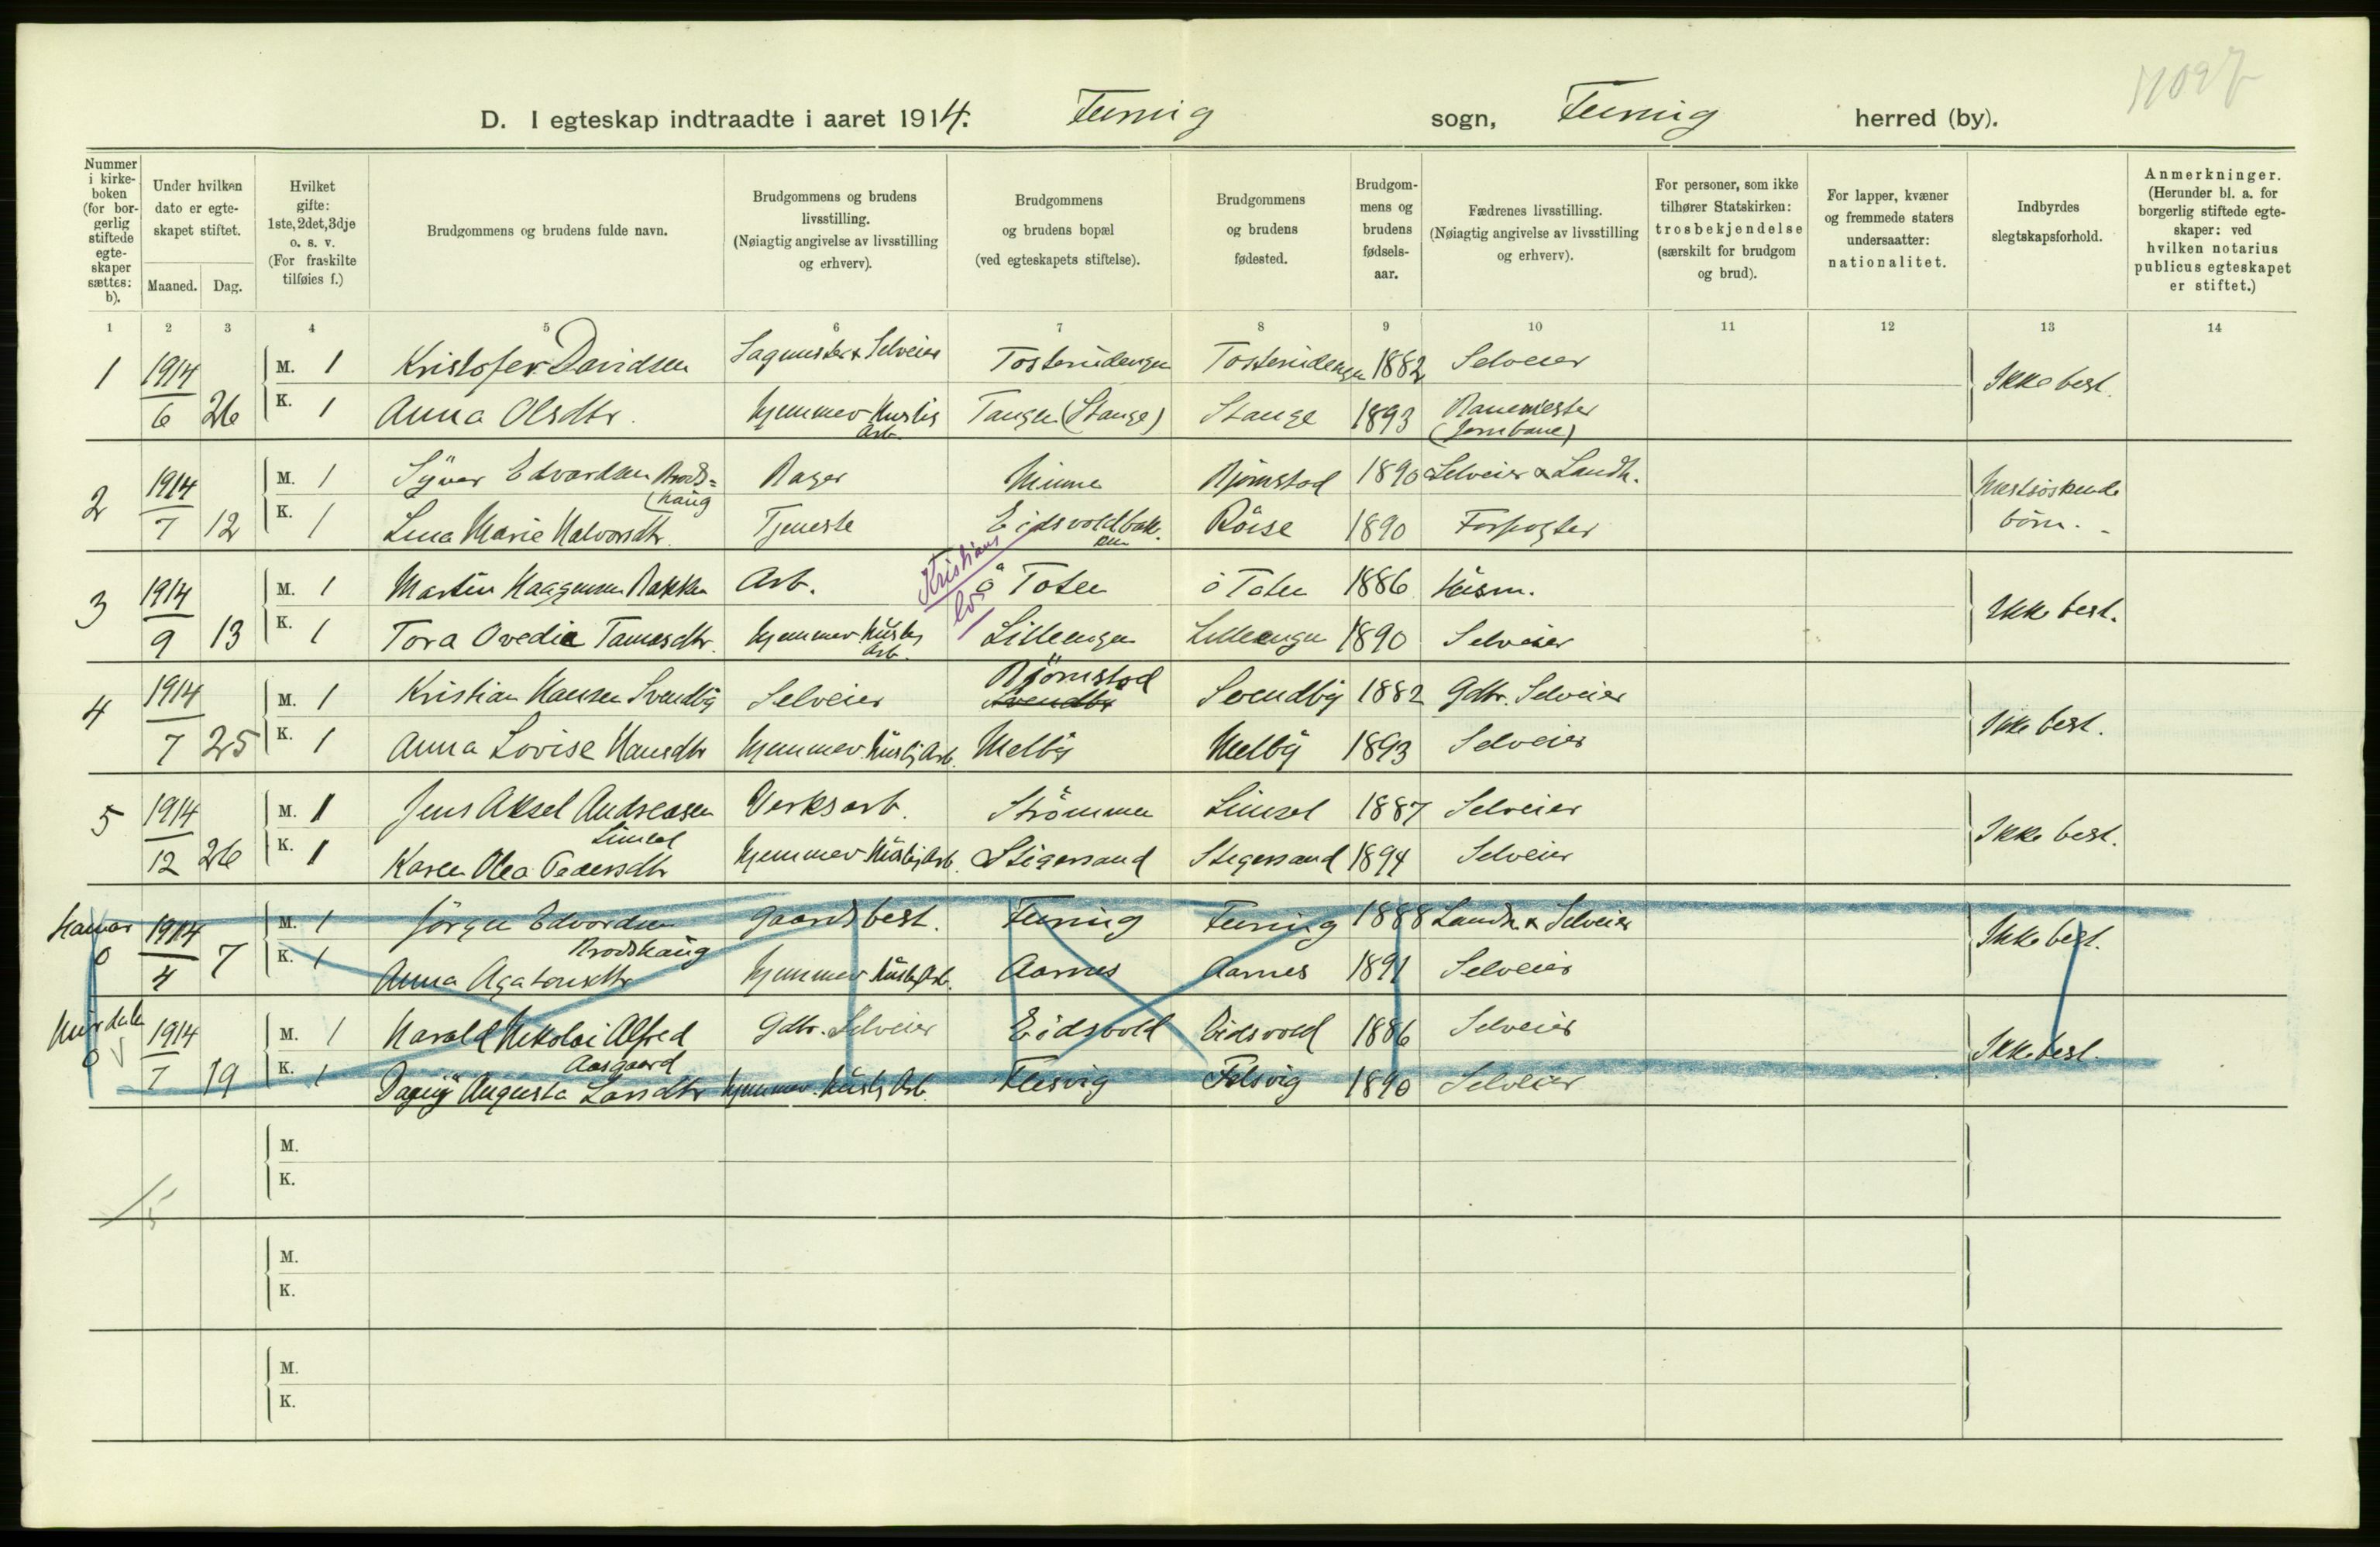 D. I egteskap indtraadte i aaret 1914. Feiring sogn, Feiring herred (by).
Nummer i kirkeboken (for borgerlig stiftede egteskaper sættes: b).
Under hvilken dato er egteskapet stiftet.
Maaned. Dag.
Hvilket gifte: 1ste, 2det, 3dje o. s. v. (For fraskilte tilføies f.)
Brudgommens og brudens fulde navn.
Brudgommens og brudens livsstilling. (Nøiagtig angivelse av livsstilling og erhverv).
Brudgommens og brudens bopæl (ved egteskapets stiftelse).
Brudgommens og brudens fødested.
Brudgommens og brudens fødselsaar.
Fædrenes livsstilling. (Nøiagtig angivelse av livsstilling og erhverv).
For personer, som ikke tilhører Statskirken: trosbekjendelse (særskilt for brudgom og brud).
For lapper, kvæner og fremmede staters undersaatter: nationalitet.
Indbyrdes slegtskapsforhold.
Anmerkninger. (Herunder bl. a. for borgerlig stiftede egteskaper: ved hvilken notarius publicus egteskapet er stiftet.)
1 2 3 4 5 6 7 8 9 10 11 12 13 14
1 1914 M. 1 Kristofer Davidsen Sagmester & Selveier Tosterudengen Tosterudengen 1882 Selveier Ikke best.
6 26 K. 1 Anna Olsdtr. hjemmev. Huslig Arb. Tangen (Stange) Stange 1893 Banemester (Jernbane)
2 1914 M. 1 Syver Edvardsen Brodshaug Bager Minne Bjørnstad 1890 Selveier & Landh. Næstsøskendebørn.
7 12 K. 1 Lina Marie Halvorsdtr. Tjeneste Eidsvoldbakken Röise 1890 Forpagter
Kristians
3 1914 M. 1 Martin Haagensen Bakken Arb. ö Toten ö Toten 1886 Husm. Ikke best.
9 13 K. 1 Tora Ovedie Tamesdtr. hjemmev. Husly Arb. Lilleengen Lilleengen 1890 Selveier
4 1914 M. 1 Kristian Hansen Svendby Selveier Bjørnstad Svendby Svendby 1882 Gdbr. Selveier Ikke best.
7 25 K. 1 Anna Lovise Hansdtr hjemmev. Husly Arb. Melby Melby 1893 Selveier
5 1914 M. 1 Jens Aksel Andreasen Limsel Verksarb. Strömmen Limsel 1887 Selveier Ikke best.
12 26 K. 1 Karen Olea Pedersdtr hjemmev. Husly Arb. Stigersand Stigersand 1894 Selveier
Hamar 1914 M. 1 Jörgen Edvardsen Brodshaug Gaardsbest. Feiring Feiring 1888 Landh. & Selveier Ikke best.
0 4 7 K. 1 Anna Agatonsdtr hjemmev. Husly Arb. Aarnes Aarnes 1891 Selveier
Hurdalen 1914 M. 1 Harald Nikolai Alfred Aasgaard Gdbr. Selveier Eidsvold Eidsvold 1886 Selveier Ikke best.
0 7 19 K. 1 Dagny Augusta Larsdtr hjemmev. Husly Arb. Flesvig Flesvig 1890 Selveier
M.
K.
M.
K.
M.
K.